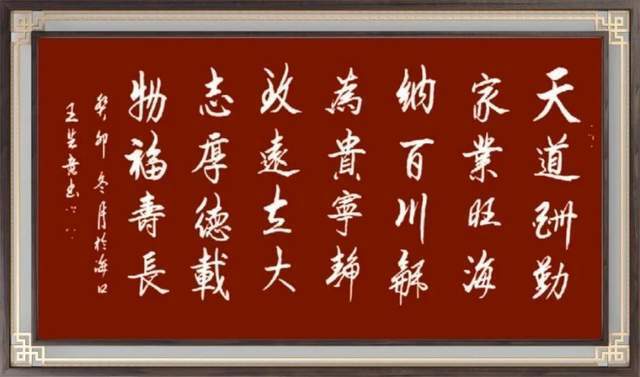 天道酬勤
家業旺海
納百川龢
為貴寧靜
致遠立大
志厚德載
物福壽長
癸卯冬月於海口
王